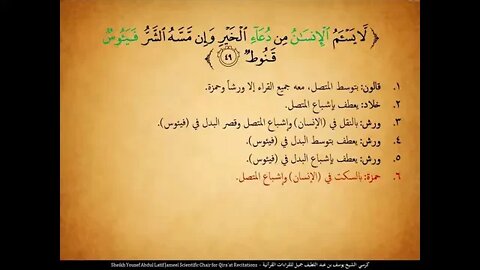 ﴿ لَّا يَسْـَٔمُ ٱلْإِنسَٰنُ مِن دُعَآءِ ٱلْخَيْرِ وَإِن مَّسَّهُ ٱلشَّرُّ فَيَـُٔوسٌ
قَنُوطٌ ٤٩ ﴾
١. قالون: بتوسط المتصل، معه جميع القراء إلا ورشاً وحمزة.
٢. خلاد: يعطف بإشباع المتصل.
٣. ورش: بالنقل في (الإنسان) وإشباع المتصل وقصر البدل في (فيئوس).
٤. ورش: يعطف بتوسط البدل في (فيئوس).
٥. ورش: يعطف بإشباع البدل في (فيئوس).
٦. حمزة: بالسكت في (الإنسان) وإشباع المتصل.
كرسي الشيخ يوسف بن عبد اللطيف جميل للقراءات القرآنية - Sheikh Yousef Abdul Latif Jameel Scientific Chair for Qira'at Recitations